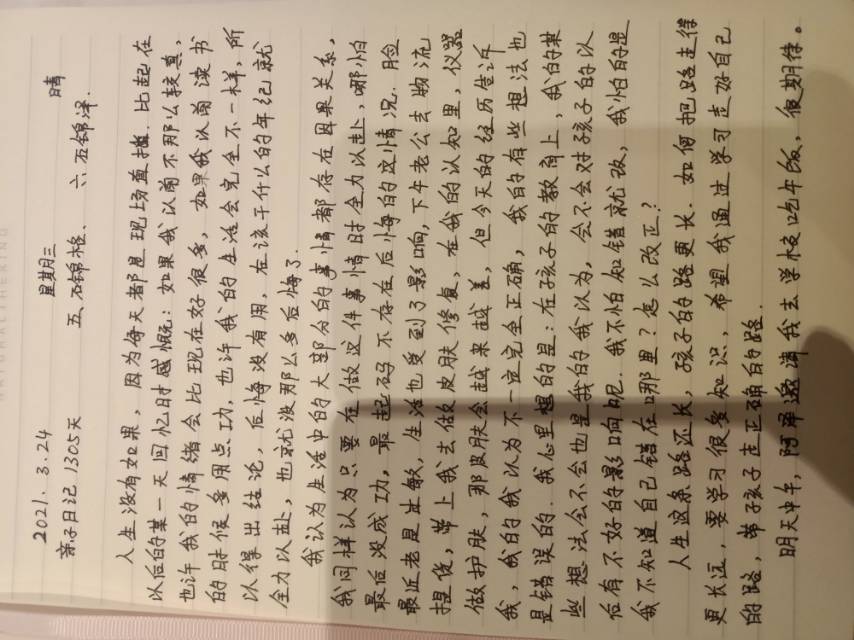 2021.3.24 星期三 晴
亲子日记1305天 五、石锦格、六、石锦泽.
人生没有如果，因为每天都是现场直播.比起在
以后的某一天回忆时感慨：如果我认前不那么较真，
也许我的情绪会比现在好很多，如果我认前读书
的时候多用点功，也许我的生活会完全不一样，所
以得出结论，后悔没有用，在该干什么的年纪就
全力以赴，也就没那么多后悔了.
我认为生活中的大部分的事情都存在因果关系，
我同样认为只要在做这件事情时全力以赴，哪怕
最后没成功，最起码不存在后悔的这情况.脸
最近老是过敏，生活也受到了影响，下午老公去物流
提货，带上我去做皮肤修复，在我的认知里，仪器
做护肤，那皮肤会越来越差，但今天的经历告诉
我，我的我认为不一定完全正确，我的有些想法也
是错误的.我心里想的是：在孩子的教育上，我的某
些想法会不会也是我的我认为，会不会对孩子的以
后有不好的影响呢.我不怕知错就改，我怕的是
我不知道自己错在哪里？怎么改正？
人生这条路还长，孩子的路更长.如何把路走得
更长远，要学习很多知识，希望我通过学习走好自己
的路，带孩子走正确的路.
明天中午，阿泽邀请我去学校吃午饭，很期待。